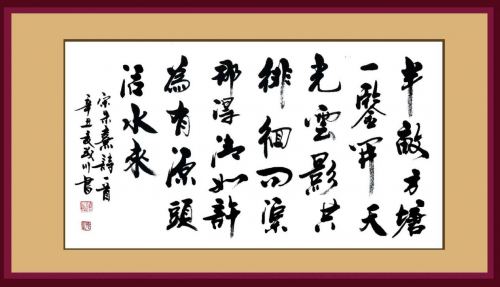 半畝方塘
一鑒開天
光雲影共
徘徊问渠
那得清如許
為有源頭
活水來
宋朱熹詩一首
辛丑川書